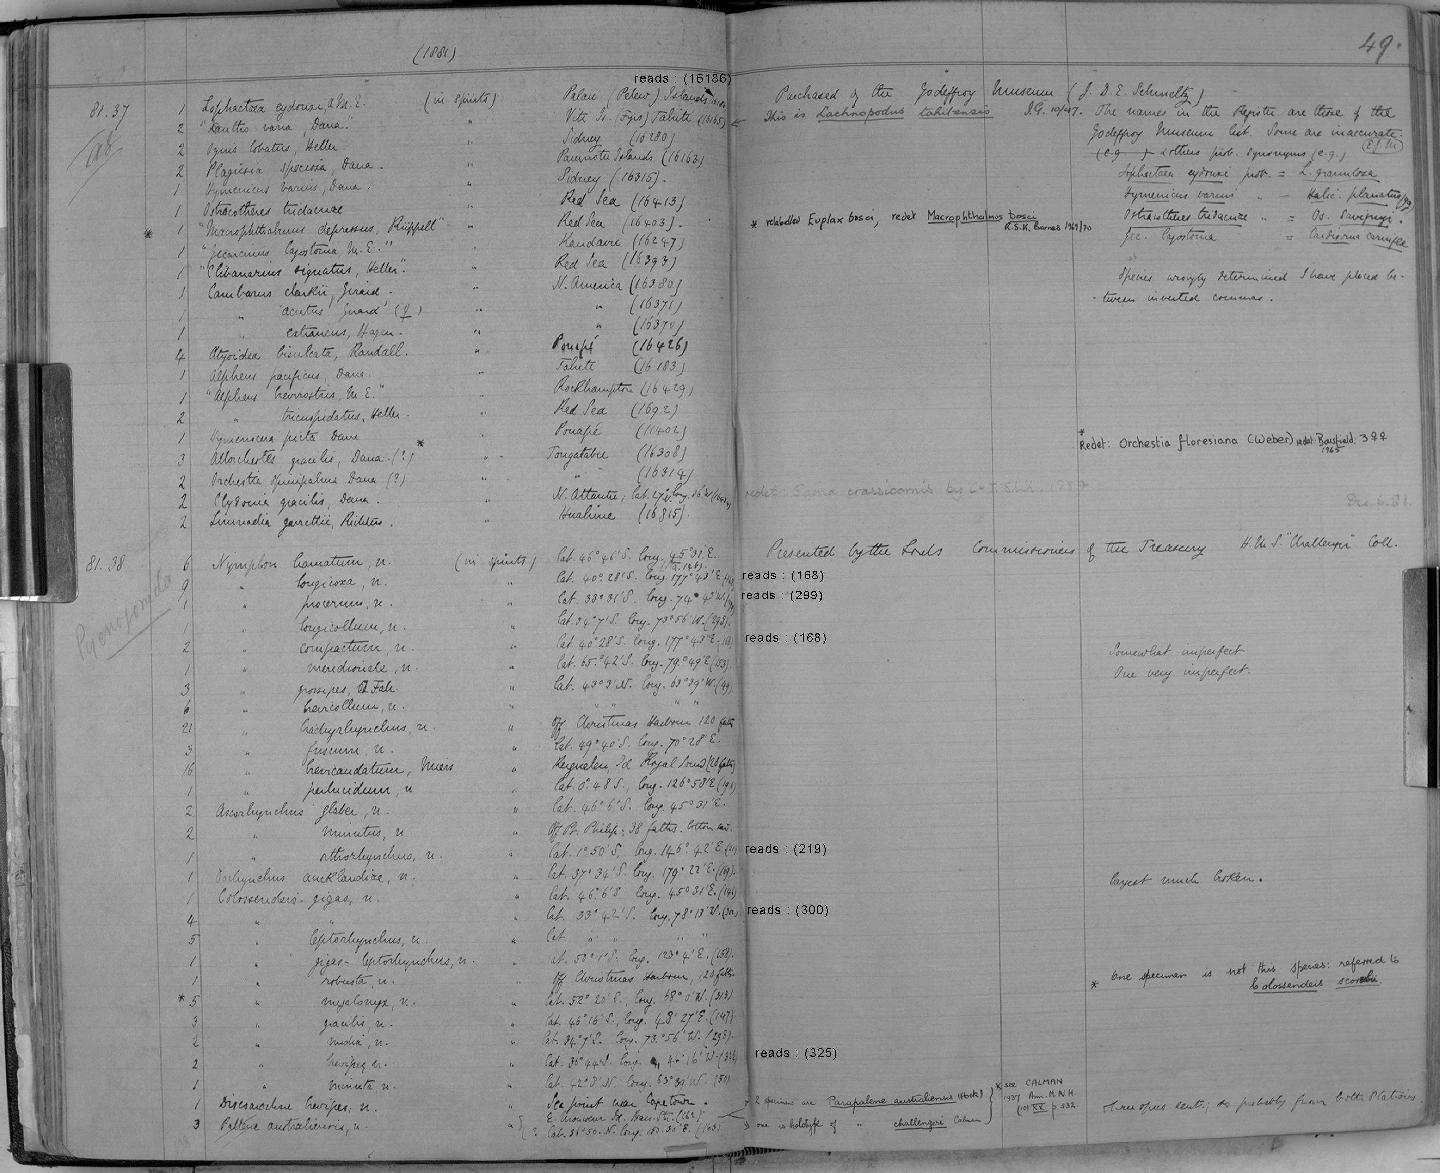 (1881)
49.
reads : (16186)
81.37
1 Lophactaea eydouxi, A.M.E. (in spirits) Palau (Pelew) Islands
Purchased of the Godeffroy Museum (J. D. E. Schmeltz)
2 "Xantho varia, Dana. " Viti Is. (Fijis) Tahiti (16165)
This is Lachnopodus tahitensis I.G. 10/47. The names in the Register are those of the
2 lobatus, Heller " Sidney (16280)
Godeffroy Museum list. Some are inaccurate.
2 Plagusia speciosa, Dana. " Paumotu Islands (16163)
(e.g. ) & others prob. synonyms (e.g.)
1 Hymenicus varius, Dana. " Sidney (16315).
Lophactaea eydouxi prob. = L. granulosa
1 Ostracotheres tridacnae " Red Sea (16413)
Hymenicus varius " = Halic. planatus
* 1 "Macrophthalmus depressus, Rüppell" " Red Sea (16403).
* relabelled Euplax bosci, redet Macrophthalmus bosci
R.S.K. Barnes 1969/70
Ostracotheres tridacnae " = Os. Savignyi.
1 "Gecarcinus lagostoma M.E." " Kandavu (16247)
Gec. lagostoma = Cardisoma carnifex
1 "Clibanarius signatus, Heller". " Red Sea (16393)
Species wrongly determined I have placed be-
1 Cambarus clarkii, Girard. " N. America (16380)
-tween inverted commas.
1 " acutus Girard (♀) " " (16371)
1 " Hagen. " " (16370)
4 Atyoidea bisulcata, Randall. " Ponapé (16426)
1 Alpheus pacificus, Dana. " Tahiti (16183)
1 "Alpheus brevirostris, M.E." " Rockhampton (16429)
2 " tricuspidatus, Heller. " Red Sea (1692)
1 Hymenocera picta Dana " Ponapé (16402)
*
3 Allorchestes gracilis, Dana. (?) * " Tongatabu (16308)
Redet: Orchestia floresiana (Weber) redet: Bousfield, 3♀♀
1965
2 Orchestia Dana (?) " (16314)
2 Clydonia gracilis, Dana. " N. Atlantic; Lat.
2 Limnadia garrettii, Richters. " Huahine (16815)
Dec. 6. 81.
81.38
6 Nymphon hamatum, n. (in spirits) Lat. 46° 46' S. Long. 45° 31' E.
Presented by the Lords Commissioners of the Treasury H.M.S. "Challenger" Coll.
Pycnogonida
9 " longicoxa, n. Lat. 40° 28' S. Long. 177° 43' E.
reads : (168)
1 " procerum, n. " Lat. 33° 31' S. Long. 74° 43' W.
reads : (299)
1 " longicollum, n. " Lat. 34° 7' S. Long. 73° 56' W. (298).
2 " compactum, n. " Lat. 40° 28' S. Long. 177° 43' E.
reads : (168)
Somewhat imperfect
1 " meridionale, n. " Lat. 65° 42' S. Long. 79° 49' E. (153)
One very imperfect.
3 " grossipes, O. Fab. " Lat. 43° 3' N. Long. 63° 39' W. (49)
6 " brevicollum, n. " " " " "
21 " brachyrhynchus, n. " Off Christmas Harbour 120 faths
3 " fuscum, n. " Lat. 49° 40' S. Long. 70° 28' E.
16 " brevicaudatum, Miers " Kerguelen Id Royal Sound (28 faths)
1 " perlucidum, n " Lat. 0° 48' S., Long. 126° 58' E.
2 Ascorhynchus glaber, n. " Lat. 46° 6' S. Long. 45° 31' E.
2 " minutus, n " Off Pt. Philip; 38 faths.
1 " orthorhynchus, n. " Lat. 1° 50' S, Long. 146° 42' E.
reads : (219)
1 Oorhynchus aucklandiae, n. " Lat. 37° 34' S. Long. 179° 22' E. (169).
largest much broken.
1 Colossendeis gigas, n. " Lat. 46° 6' S. Long. 45° 31' E.
4 " " " Lat. 33° 42' S. Long. 78° 18' W.
reads : (300)
5 " leptorhynchus, n. " Lat. " " " "
1 " gigas-leptorhynchus, n. " Lat. 50° 1' S. Long. 123° 4' E. (158).
1 " robusta, n. " Off Christmas Harbour, 120 faths
* 5 " megalonyx, n. " Lat. 52° 20' S., Long. 68° 0' W. (313)
* One specimen is not this species: referred to
Colossendeis scorsbii.
3 " gracilis, n. " Lat. 46° 16' S., Long. 48° 27' E. (147)
2 " media, n. " Lat. 34° 7' S. Long. 73° 56' W. (298).
2 " brevipes n. " Lat. 36° 44' S. Long. 46° 16' W.
reads : (325)
1 " minuta n. " Lat. 42° 8' N. Long. 63° 39' W. (50)
1 Discoarachne brevipes, n. " Sea point near Capetown.
2 specimens are Parapallene australiensis (Hoek)
* see CALMAN
1937 Ann. M.N.H.
(10) XX p. 532
3 Pallene australiensis, n. " E. Moncoeur Id.
Lat. 36° 56' Long. 150° 30' E.
one is holotype of " challengeri Calman